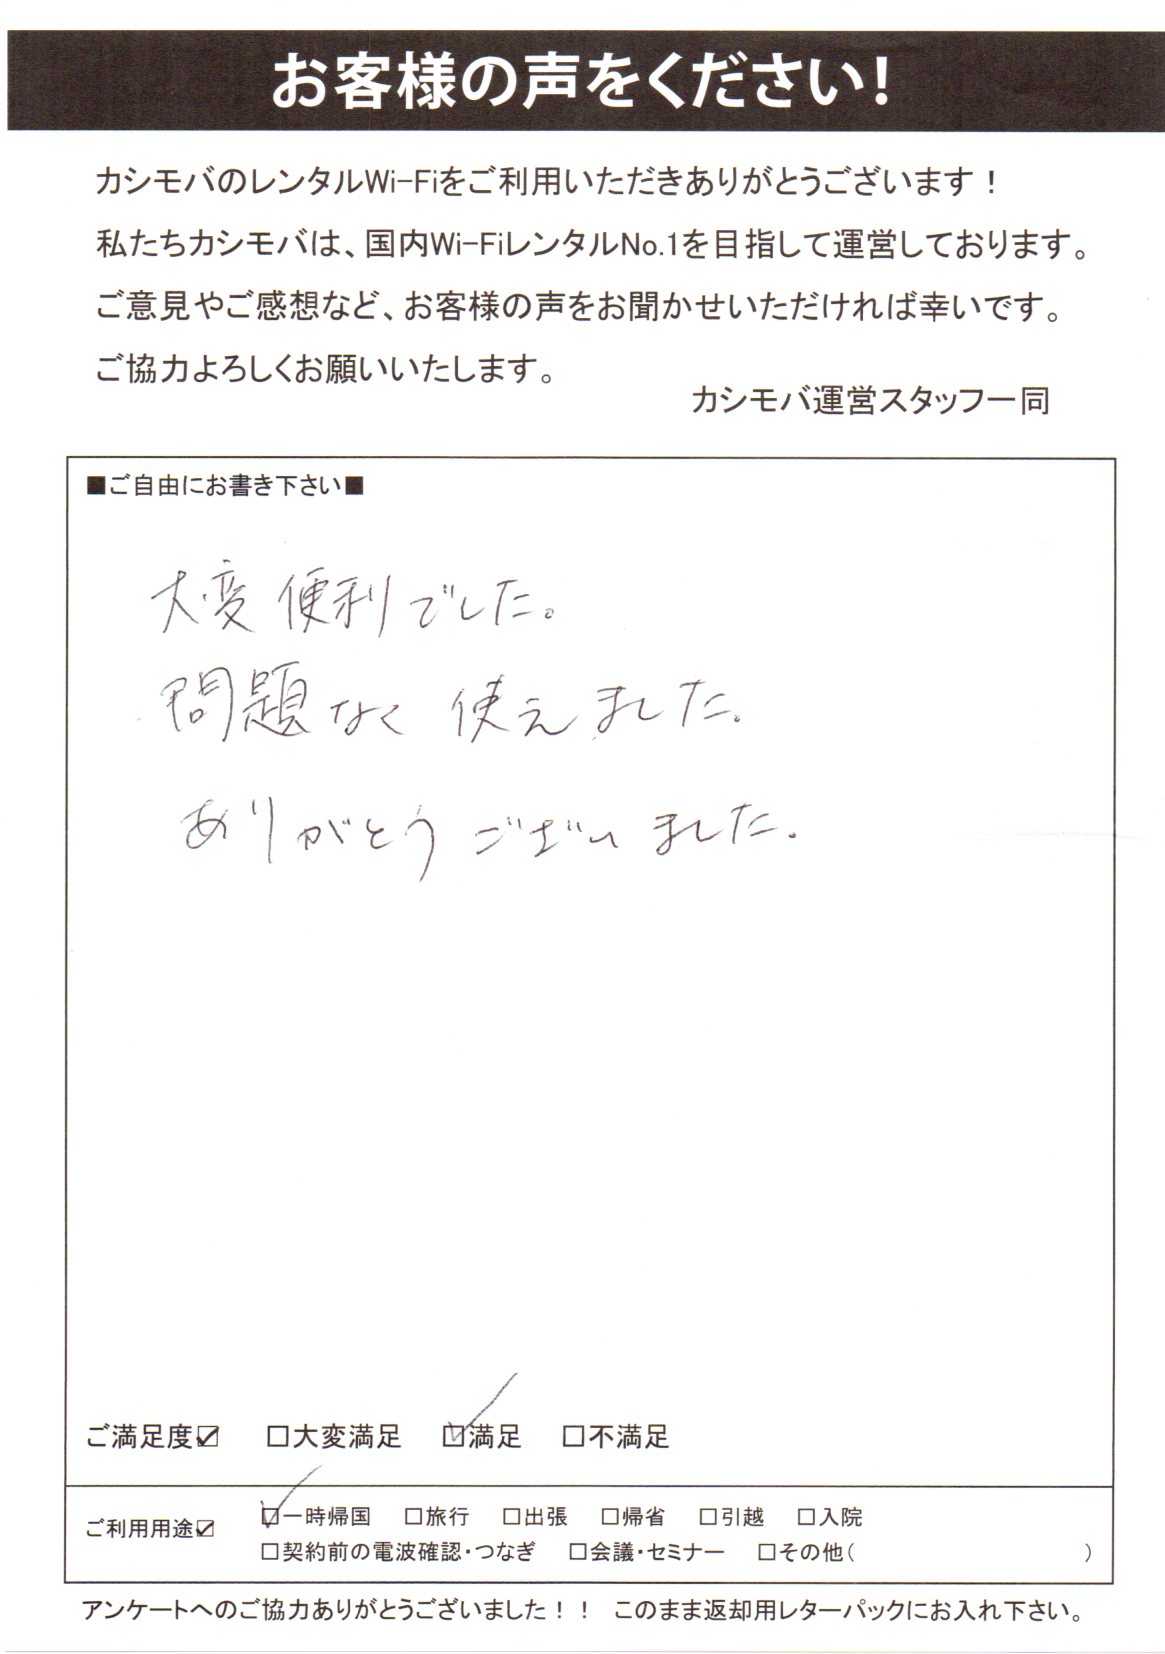 お客様の声をください!
カシモバのレンタルWi-Fiをご利用いただきありがとうございます！
私たちカシモバは、国内Wi-FiレンタルNo.1を目指して運営しております。
ご意見やご感想など、お客様の声をお聞かせいただければ幸いです。
ご協力よろしくお願いいたします。
カシモバ運営スタッフ一同
■ご自由にお書き下さい■
大変便利でした。
問題なく使えました。
ありがとうございました。
ご満足度☑ □大変満足 ☑満足 □不満足
ご利用用途☑ ☑一時帰国 □旅行 □出張 □帰省 □引越 □入院
□契約前の電波確認・つなぎ □会議・セミナー □その他( )
アンケートへのご協力ありがとうございました！！ このまま返却用レターパックにお入れ下さい。